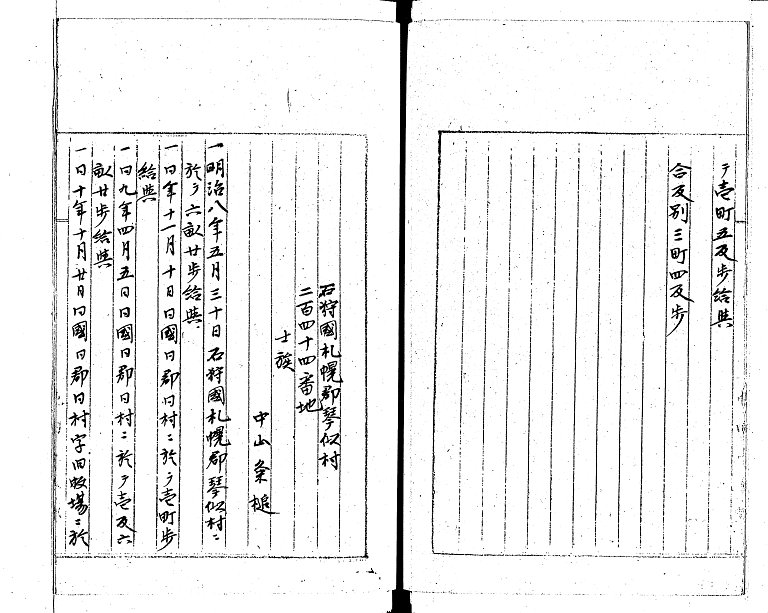 テ壱町五反歩給與
合反別三町四反歩
石狩國札幌郡琴似村
二百四十四番地
士族
中山粂槌
一明治八年五月三十日石狩國札幌郡琴似村ニ
於テ六畝廿歩給與
一同年十一月十日同國同郡同村ニ於テ壱町歩
給與
一同九年四月五日同國同郡同村ニ於テ壱反六
畝廿歩給與
一同十年十月廿日同國同郡同村字旧牧場ニ於